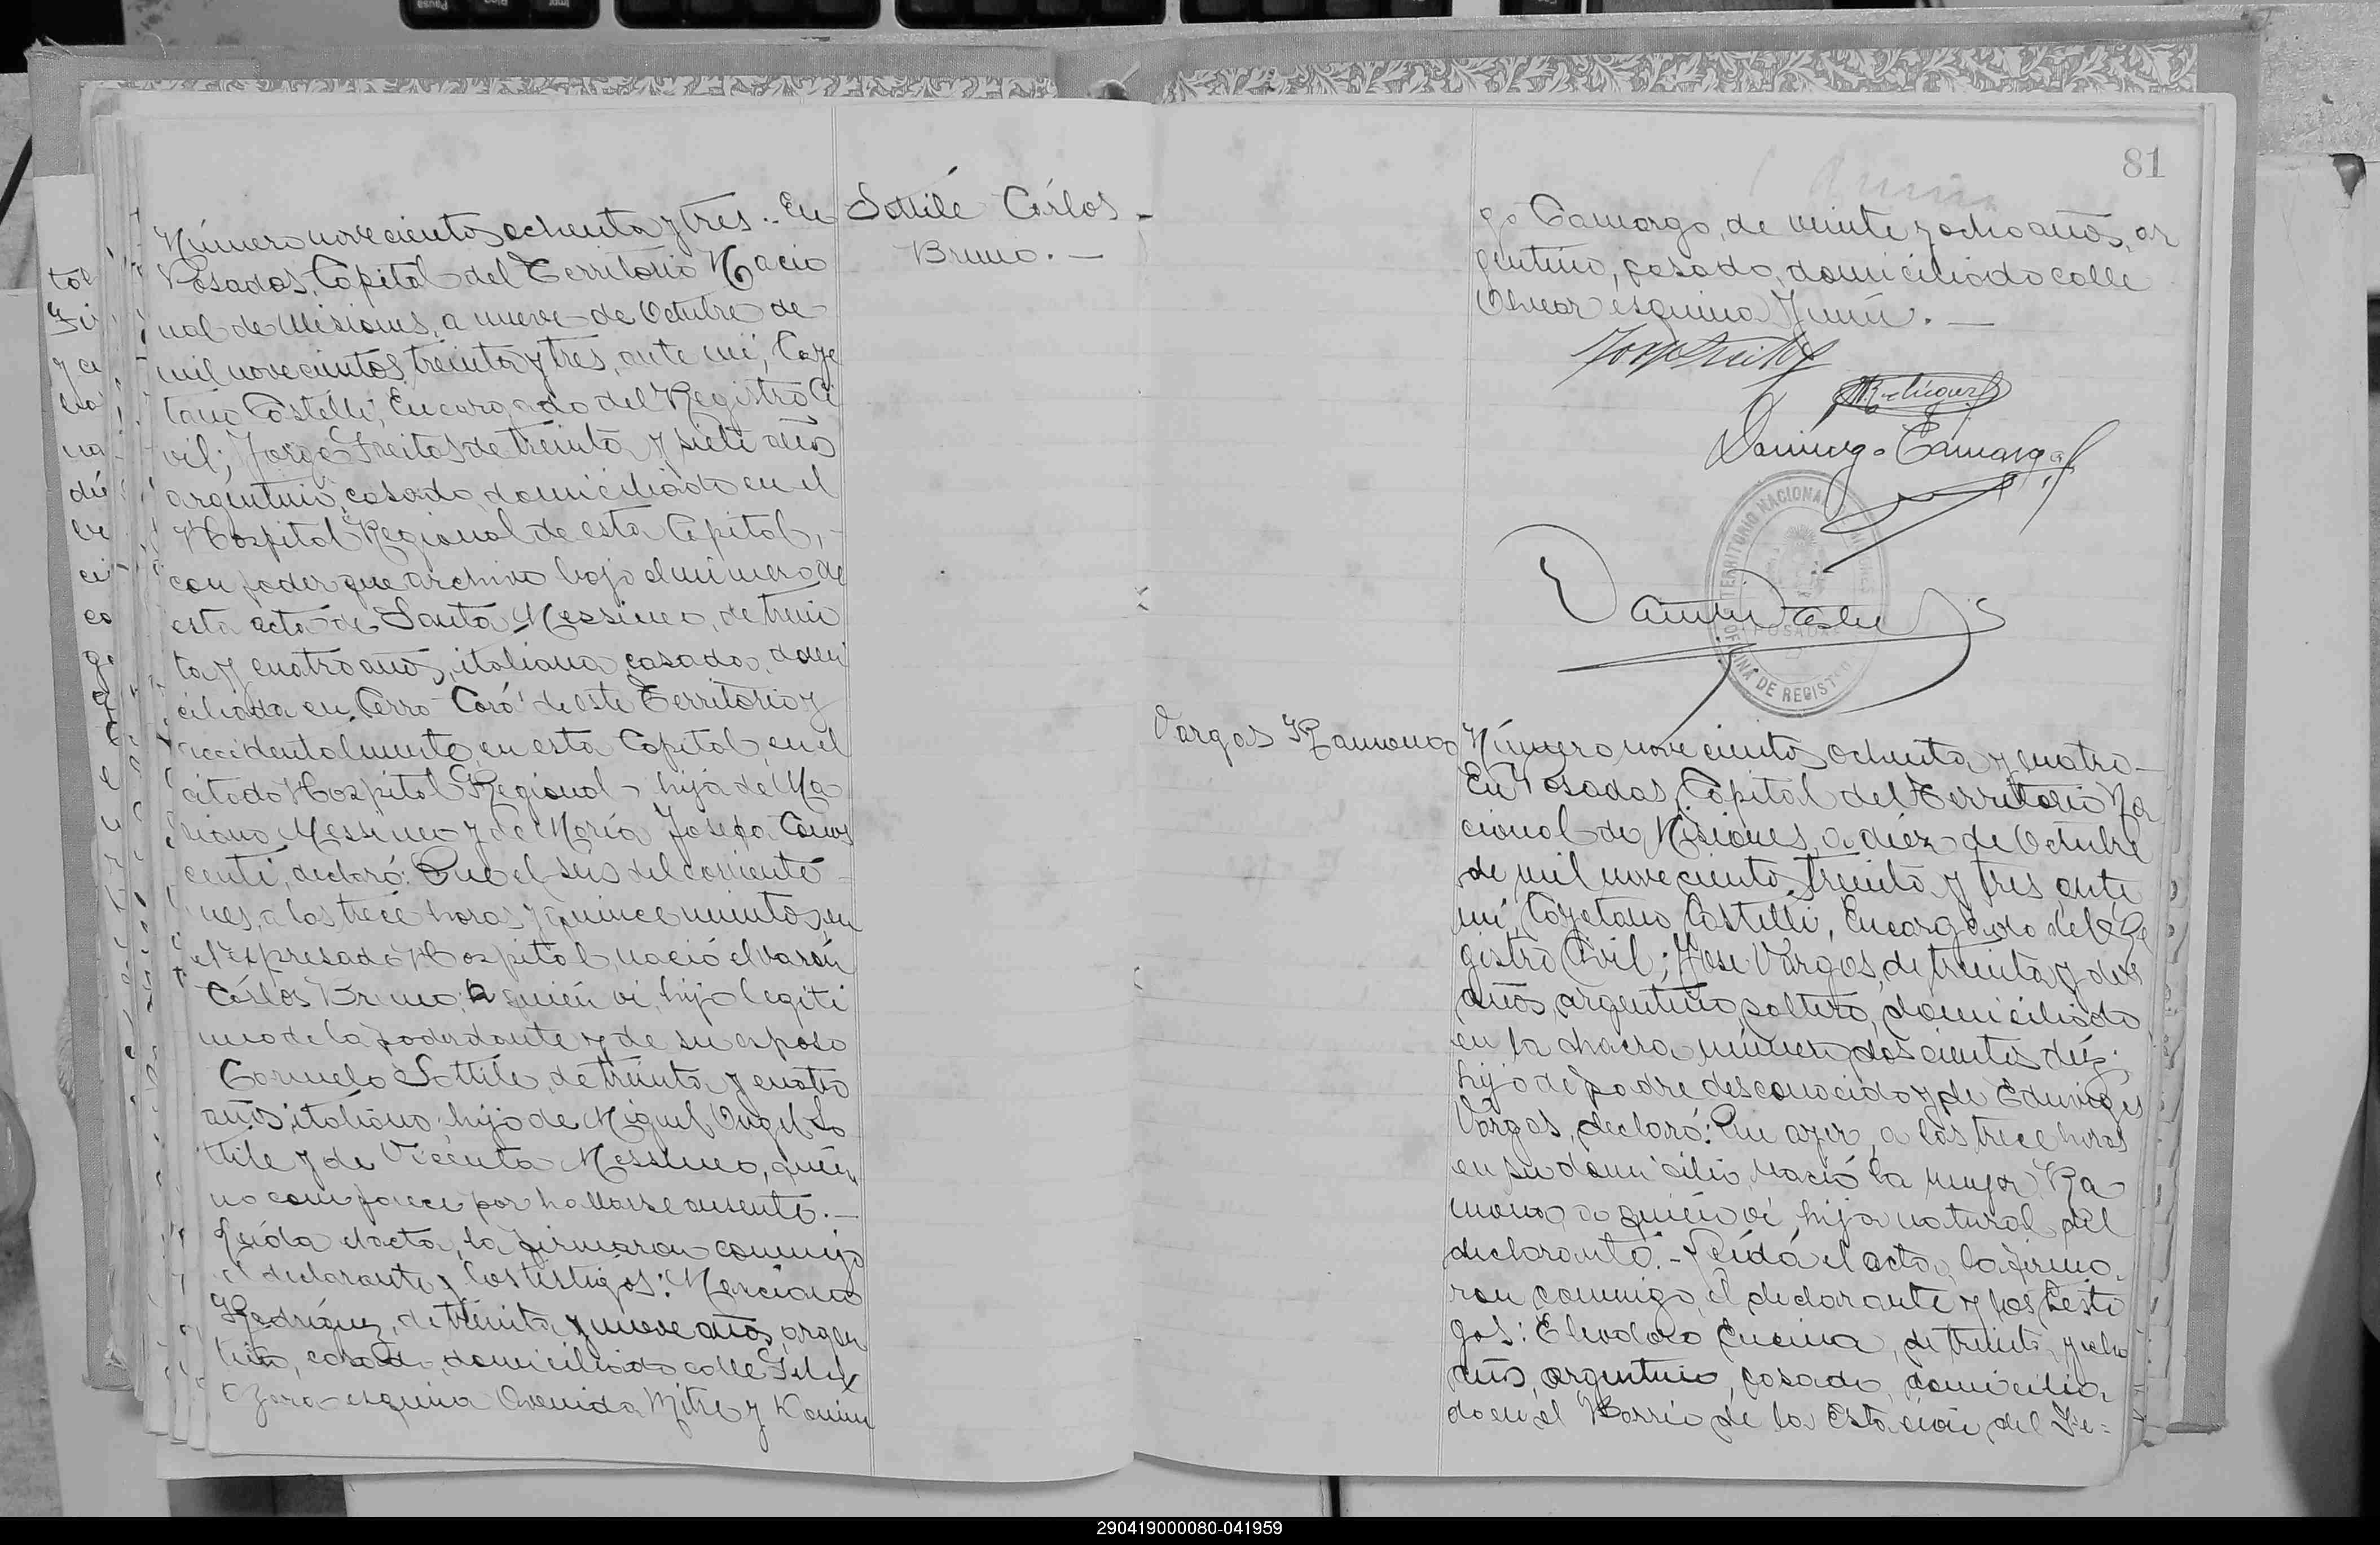 Número novecientos ochenta y tres.- En
Posadas, Capital del Territorio Nacio
nal de Misiones, a nueve de Octubre de
mil novecientos treinta y tres, ante mi, Caye
tano Castelli, Encargado del Registro Ci
vil; Jorge Freitas de treinta y siete años
argentino, casado, domiciliado en el
Hospital Regional de esta Capital,
con poder que archivo bajo el número de
esta acta de Santa Messineo, de trein
ta y cuatro años, italiana, casada, domi
ciliada en Cerro Corá de este Territorio y
accidentalmente en esta Capital, en el
citado Hospital Regional, hija de Ma
riano Messineo y de María Josefa
declaró: Que el seis del corriente
mes, a las trece horas y quince minutos, en
el expresado Hospital, nació el varón
Cárlos Bruno, a quién vi, hijo legíti
mo de la poderdante y de su esposo
Carmelo Sottile, de treinta y cuatro
años, italiano, hijo de Miguel Angel So
ttile y de Vicenta Messineo, quién
no comparece por hallarse ausente.-
Leída el acta, la firmaron conmigo
el declarante y los testigos: Marciano
Rodríguez, de treinta y nueve años, argen
tino, casado, domiciliado calle Felix
Azara esquina Avenida Mitre y Domin
Sottile Cárlos
Bruno.-
81
go Camargo, de veinte y ocho años, ar
gentino, casado, domiciliado calle
Alvear esquina Junín.-
Jorge Freitas
MRodriguez
Domingo Camargo
TERRITORIO NACIONAL MISIONES
POSADAS
OFICINA DE REGISTRO
Vargas Ramona
Número novecientos ochenta y cuatro-
En Posadas, Capital del Territorio Na
cional de Misiones, a diez de Octubre
de mil novecientos treinta y tres, ante
mí, Cayetano Castelli, Encargado del Re
gistro Civil; José Vargas, de treinta y dos
años, argentino, soltero, domiciliado
en la chacra número doscientos diez,
hijo de padre desconocido y de Eduviges
Vargas, declaró: Que ayer, a las trece horas
en su domicilio, nació la mujer Ra
mona, a quién vi, hija natural del
declarante.- Leída el acta, la firma
ron conmigo, el declarante y los testi
gos: Eleodoro Encina, de treinta y ocho
años, argentino, casado, domicilia
do en el Barrio de la Estación del Fe=
290419000080-041959